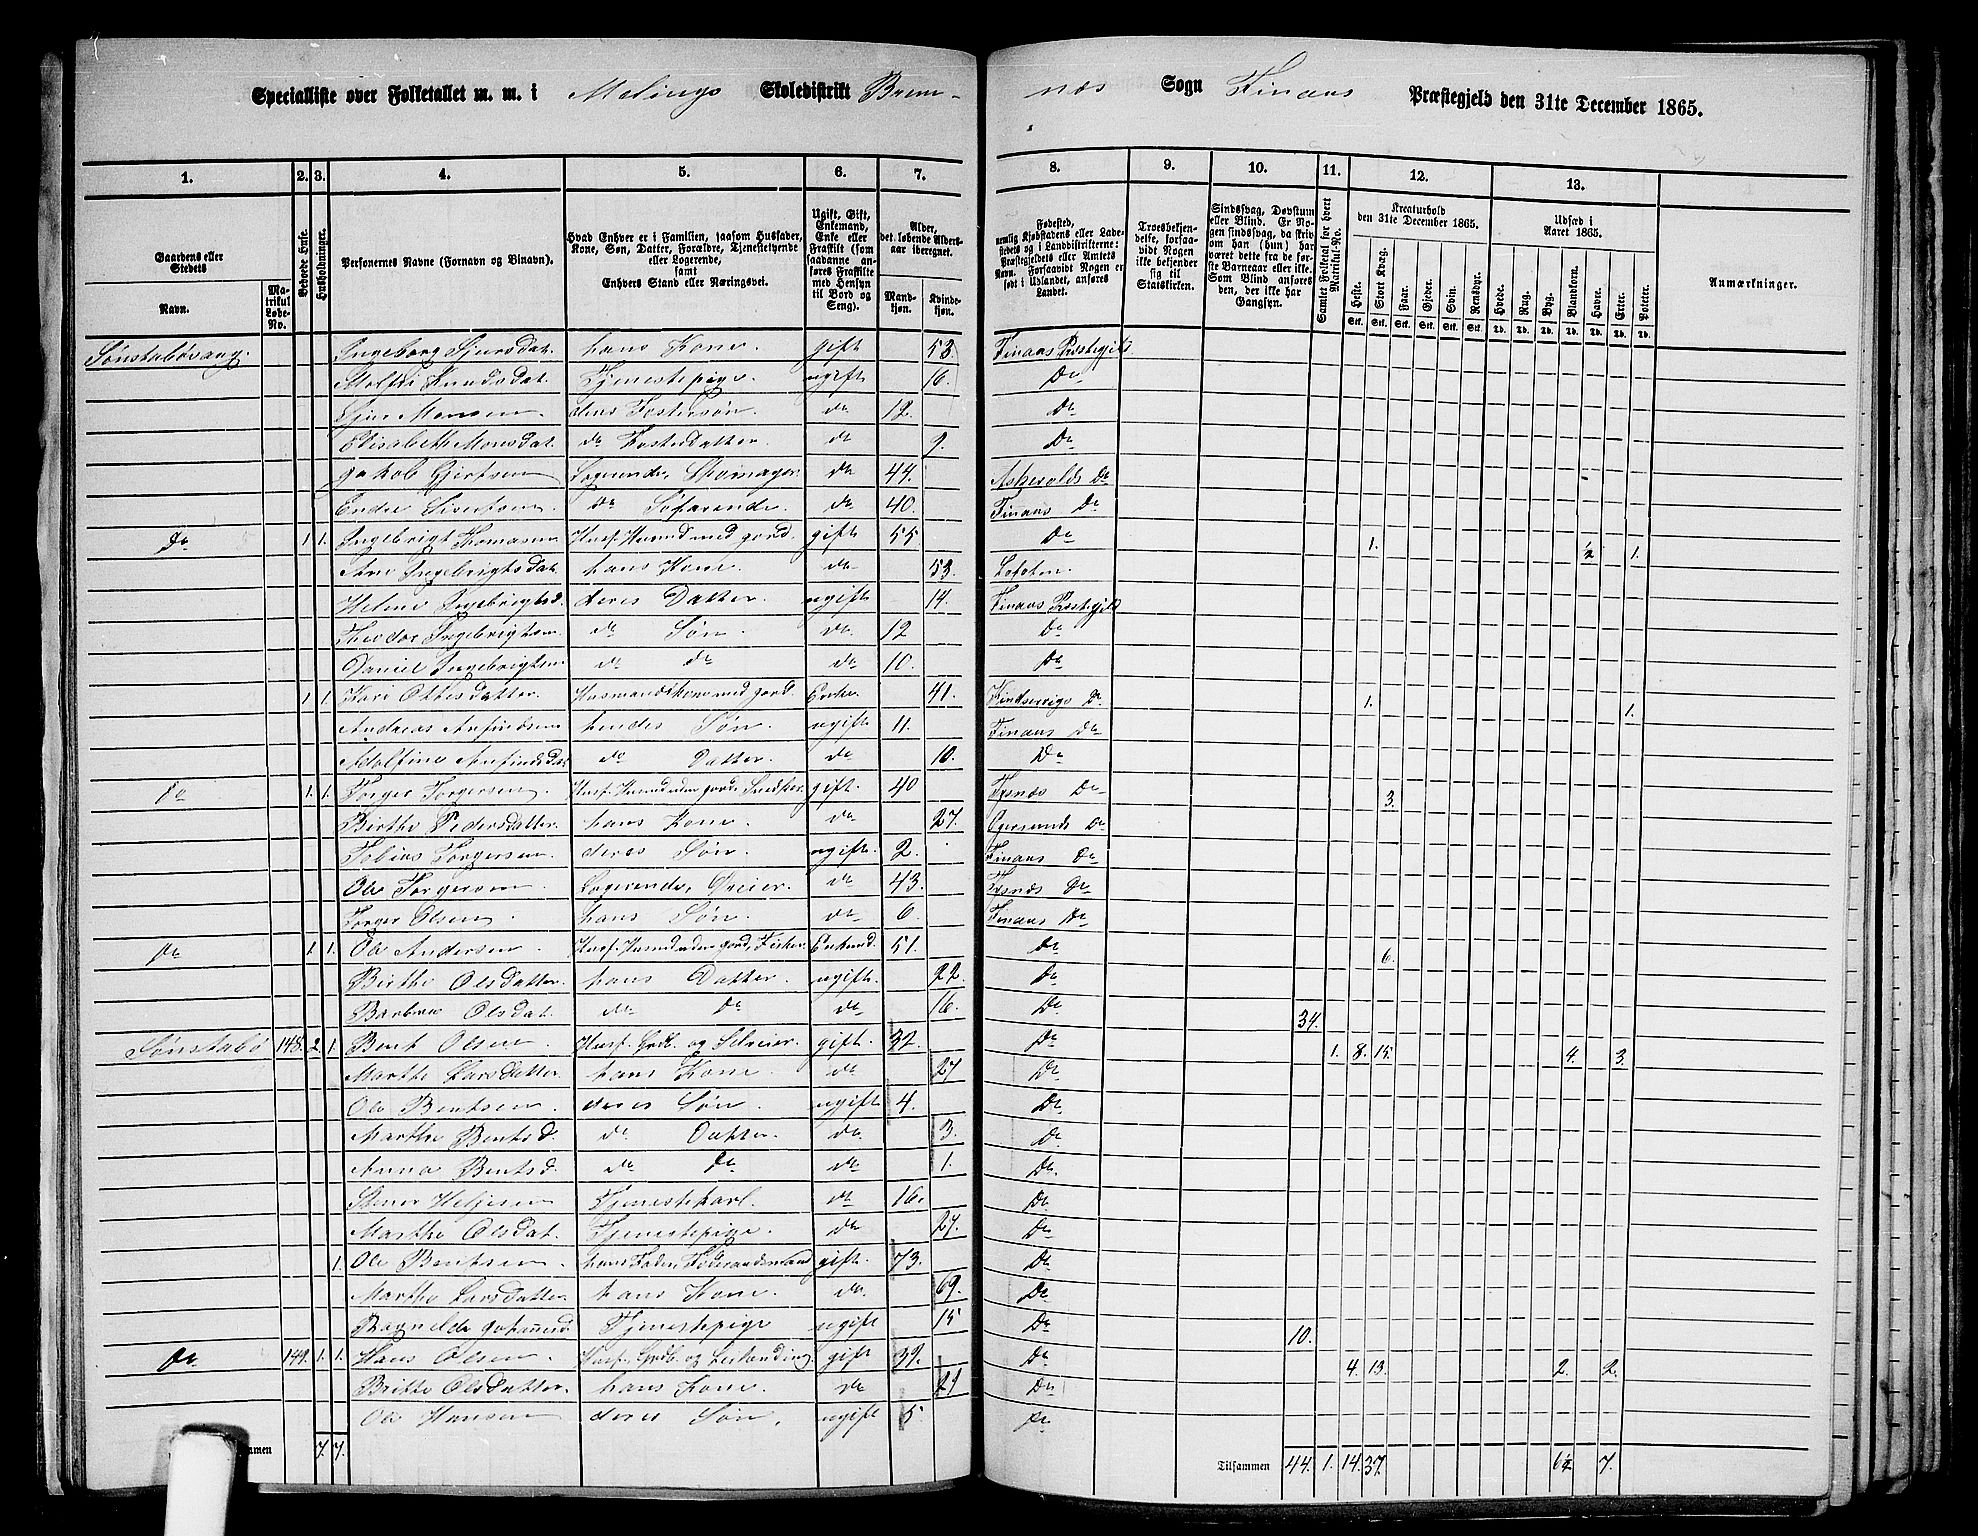 Specialliste over Folketallet m. m. i Melings Skoledistrikt Brem- næs Sogn Finaas Præstegjeld den 31te December 1865.
1. 2. 3. 4. 5. 6. 7. 8. 9. 10. 11. 12. 13.
Gaardens eller Stedets Navn. Matrikul Løbe-No. Beboede Huse. Husholdninger. Personernes Navne (Fornavn og Binavn). Hvad Enhver er i Familien, saasom Husfader, Kone, Søn, Datter, Forældre, Tjenestetyende eller Logerende, samt Enhvers Stand eller Næringsvei. Ugift, Gift, Enkemand, Enke eller Fraskilt (som saadanne anføres Fraskilte med Hensyn til Bord og Seng). Alder, det løbende Alders-aar iberegnet. Mandkjøn. Kvindekjøn.
Fødested, nemlig Kjøbstadens eller Ladestedets og i Landdistrikterne: Præstegjeldets eller Amtets Navn. Forsaavidt Nogen er født i Udlandet, anføres Landet. Troesbekjendelse, forsaavidt Nogen ikke bekjender sig til Statskirken. Sindssvag, Døvstum eller Blind. Er Nogen sindssvag, da skrives om han (hun) har været dette fra de første Barneaar eller ikke. Som Blind anføres den, der ikke har Gangsyn. Samlet Folketal for hvert Matrikul-No. Kreaturhold den 31te December 1865. Heste. Stort Kvæg. Faar. Gjeder. Svin. Rensdyr. Udsæd i Aaret 1865. Hvede. Rug. Byg. Blandkorn. Havre. Erter. Poteter. Anmærkninger.
Sønstabøvaag. Ingeborg Sjursdat. hans Kone. gift 58. Finaas Præstegjeld
Knudsdat. Tjenestepige. ugift 16. Do
Sjur Monsen. deres Fostersøn. do 12. Do
Elisabeth Monsdat. do Fosterdatter. do 9. Do
Jakob Gjertsen Logerende, Skomager. do 44. Askevolds Do
Endre Sivertsen. do Søfarende. do 40. Finaas Do
Do 1. 1. Ingebrigt Thomasen Husf. Husmd med Jord. gift 55 Do 1. ½ 1.
Ane Ingebrigtsdat. hans Kone. do 53. Lofoten.
Helene Ingebrigtsd. deres Datter. ugift 14. Finaas Præstegjeld
Theodor Ingebrigtsen. do Søn. do. 12 Do
Daniel Ingebrigtsen do do do 10. Do
1. 1. Kari Ottesdatter. Husmandskone med Jord. Enke. 41. Kindservigs Do 1. 1.
Andreas Anfindsen hendes Søn. ugift 11. Finaas Do
Adolfine Anfindsdat do Datter. do 10. Do
Do 1. 1. Torger Torgersen. Husf. Husmd uden Jord, Snedker. gift. 40 Tysnæs Do 3.
Birthe Pedersdatter. hans Kone. do 27. Egersunds Do
Tobias Torgersen deres Søn. ugift. 2. Finaas Do
Ole Torgersen. Logerende, Dreier. do 43. Tysnæs Do
Torger Olsen. hans Søn do 6. Finaas Do
Do 1. 1. Ole Andersen. Husf. Husmd uden Jord, Fisker. Enkemd. 51. Do 6.
Birthe Olsdatter. hans Datter. ugift. 22. Do
Barbro Olsdat. do do do 16. Do 34.
Sønstabø 148. 2. 1. Bent Olsen Husf. Grdb. og Selveier. gift. 32. Do 1. 8. 15. 4. 3.
Marthe Larsdatter. hans Kone. do 27 Do
Ole Bentsen. deres Søn. ugift 4. Do
Marthe Bentsd. do Datter. do. 3. Do
Anna Bentsd. do do do 1. Do
Helgesen Tjenestekarl. do 16. Do
Marthe Olsdat. Tjenestepige. do 27. Do
1. Ole Bentsen. hans Fader, Føderaadsmand gift. 73. Do
Marthe Larsdatter. hans Kone. do. 69. Do
Ragnilde Johannesd Tjenestepige ugift 15 Do 10.
Do 149. 1. 1. Hans Olsen. Husf. Grdb. og Leilending. gift 39. Do 4. 13. 2. 2.
Britte Olsdatter. hans Kone. do 29 Do
Ole Hansen deres Søn. ugift 5 Do
7. 7. Tilsammen 44. 1. 14. 37. 6½ 7.